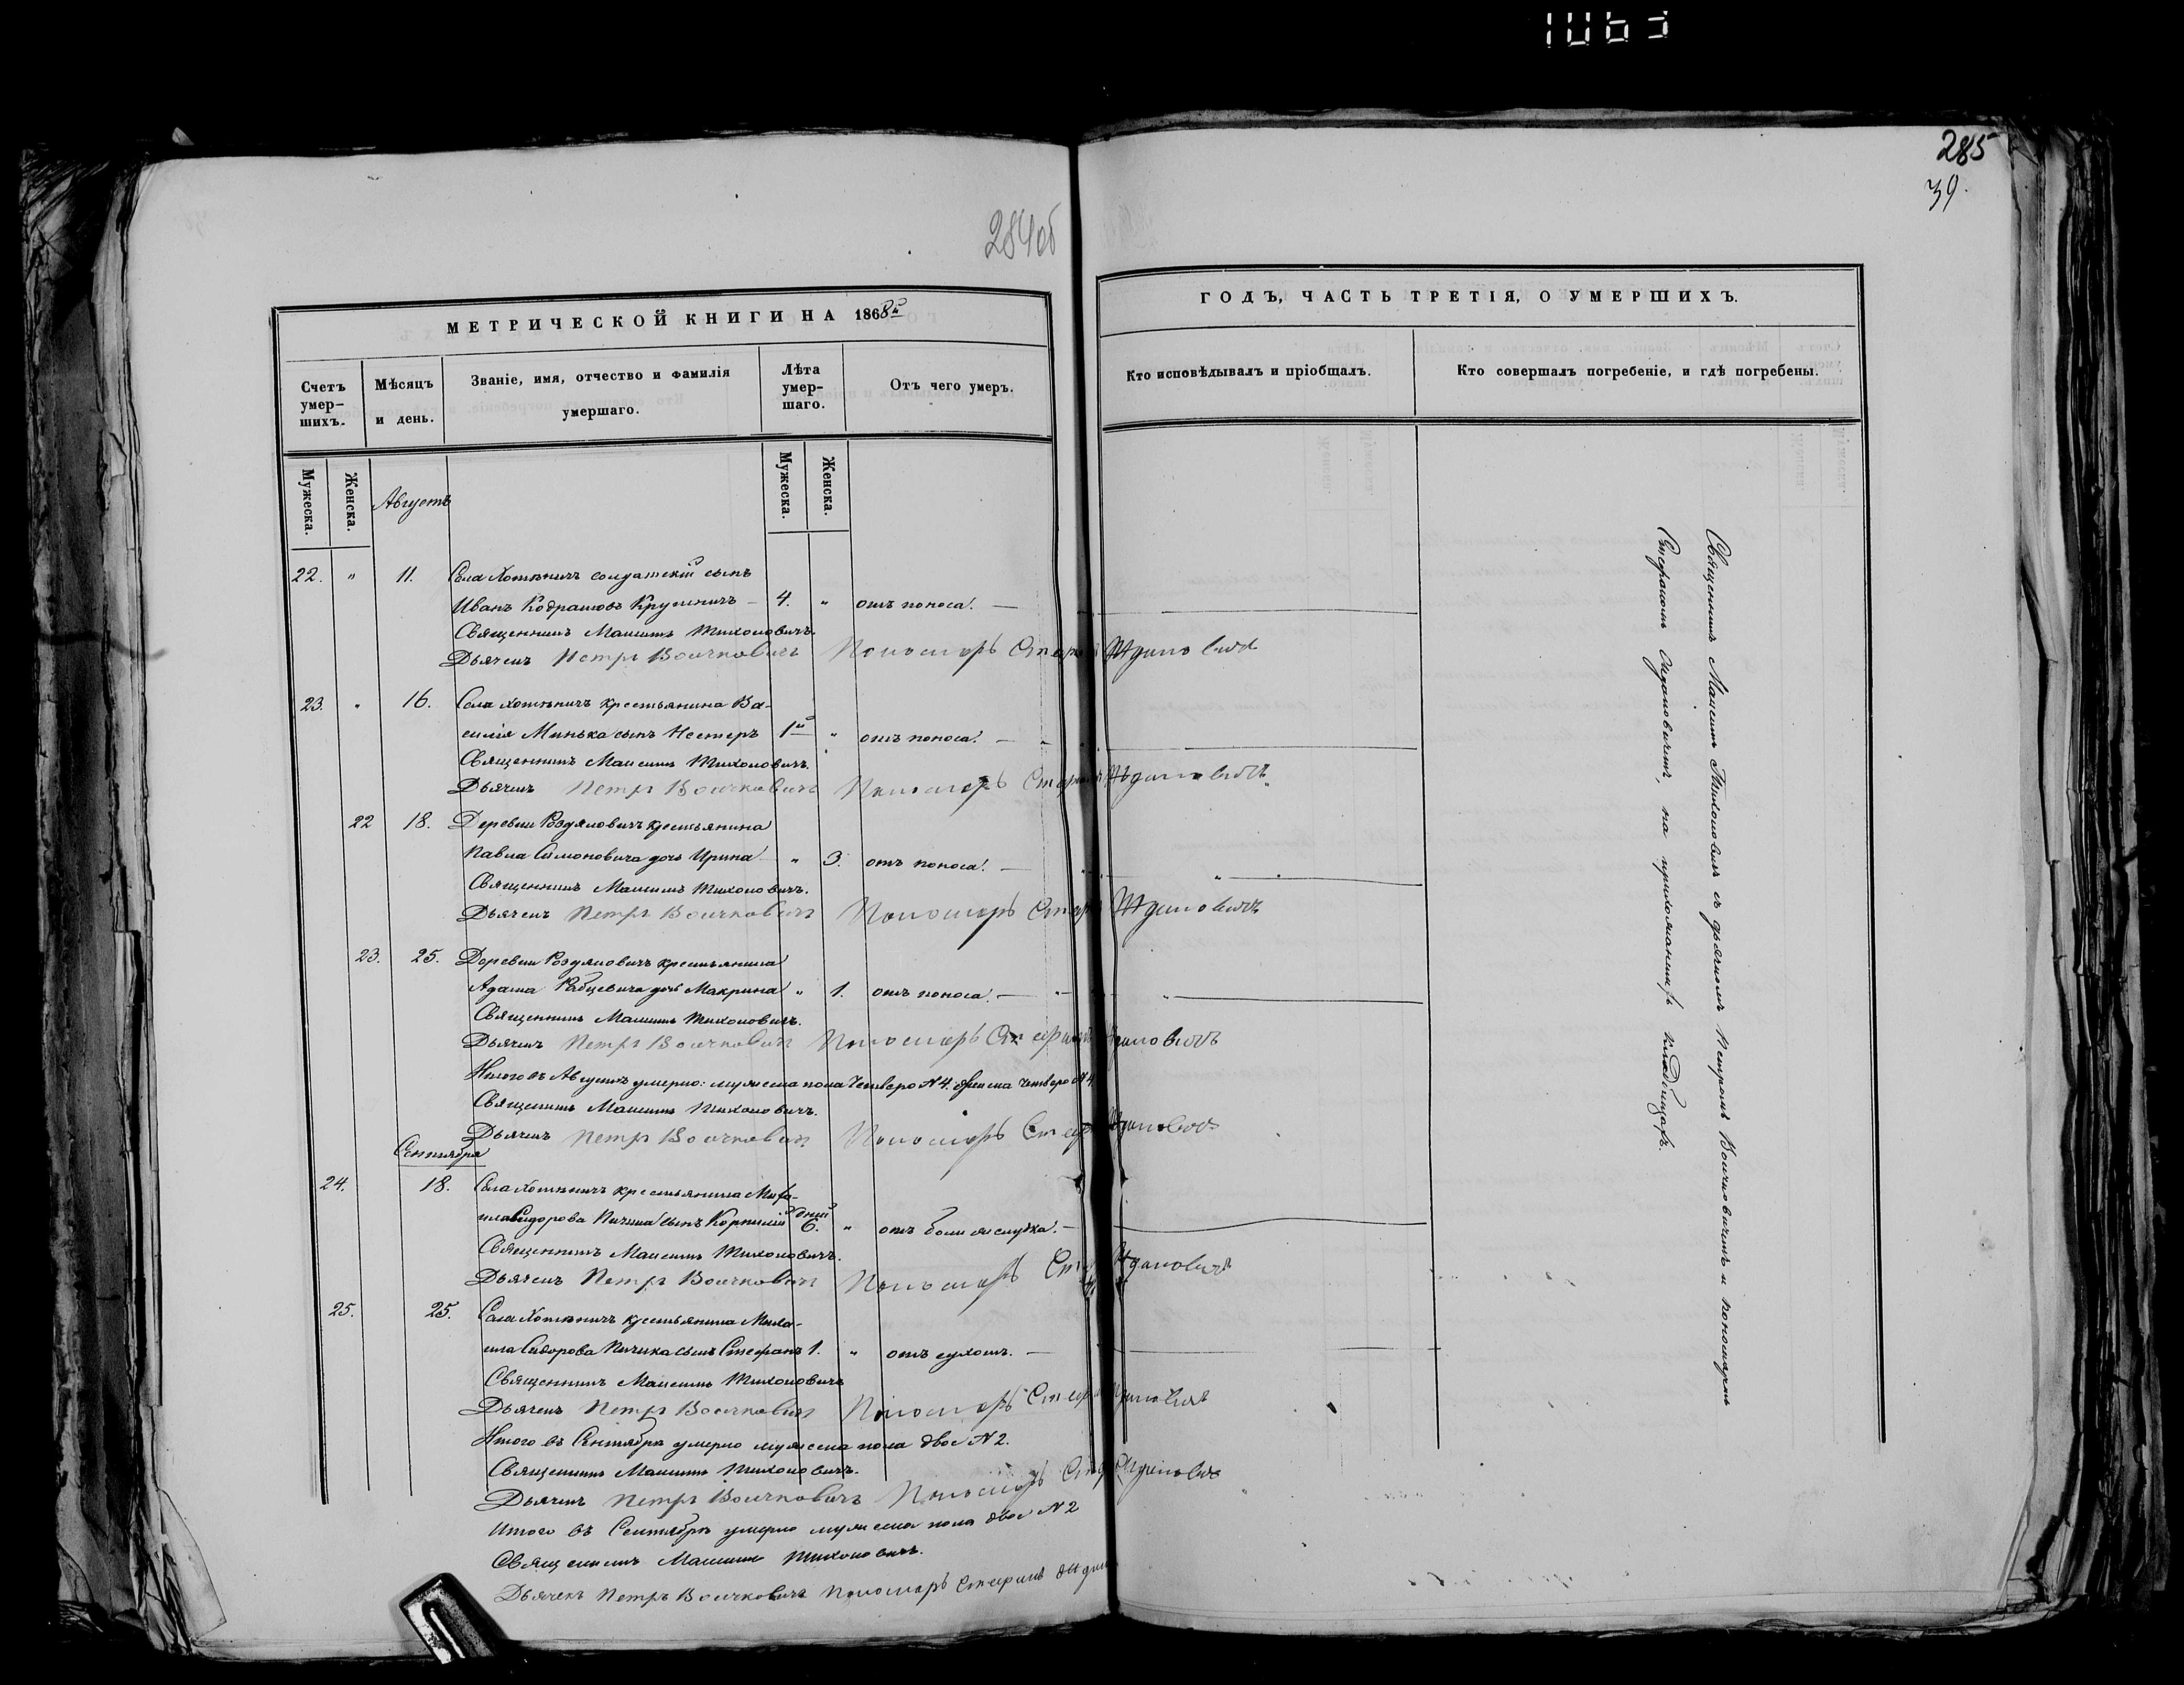 1063
285
39.
284об
МЕТРИЧЕСКОЙ КНИГИ НА 1868й
ГОДЪ, ЧАСТЬ ТРЕТІЯ, О УМЕРШИХЪ.
Счетъ умер-шихъ.
Мѣсяцъ и день.
Званіе, имя, отчество и фамилія умершаго.
Лѣта умер-шаго.
Отъ чего умеръ.
Кто исповѣдывалъ и пріобщалъ.
Кто совершалъ погребеніе, и гдѣ погребены.
Мужеска.
Женска.
Августъ
Мужеска.
Женска.
22. " 11. Села Хотыничъ солдатскій сынъ
Иванъ Кодратовъ — 4. " отъ поноса. —
Священникъ Максимъ Тихоновичъ.
Дьячекъ Петръ Воличковичъ Пономарь Стефанъ Ждановичъ
23. " 16. Села Хотыничъ крестьянина Ва-
силія Минька сынъ Нестеръ 1й " отъ поноса. —
Священникъ Максимъ Тихоновичъ.
Дьячекъ Петръ Воличковичъ Пономарь Стефанъ Ждановичъ
22 18. Деревни Раздяловичъ крестьянина
Павла Симоновича дочь Ирина " 3. отъ поноса. —
Священникъ Максимъ Тихоновичъ.
Дьячекъ Петръ Воличковичъ Пономарь Стефанъ Ждановичъ
23. 25. Деревни Раздяловичъ крестьянина
Адама Рабцевича дочь Макрина " 1. отъ поноса. —
Священникъ Максимъ Тихоновичъ.
Дьячекъ Петръ Воличковичъ Пономарь Стефанъ Ждановичъ
Итого въ Августѣ умерло: мужеска пола четверо №4. женска четверо №4.
Священникъ Максимъ Тихоновичъ.
Дьячекъ Петръ Воличковичъ Пономарь Стефанъ Ждановичъ
Сентября
24. 18. Села Хотыничъ крестьянина Миха-
ила Сидорова сынъ Корнилій 6. дней " отъ боли желудка. —
Священникъ Максимъ Тихоновичъ.
Дьячекъ Петръ Воличковичъ Пономарь Стефанъ Ждановичъ
25. 25. Села Хотыничъ крестьянина Миха-
ила Сидорова сынъ Стефанъ 1. " отъ сухотъ. —
Священникъ Максимъ Тихоновичъ
Дьячекъ Петръ Воличковичъ Пономарь Стефанъ Ждановичъ
Итого въ Сентябрѣ умерло мужеска пола двое №2.
Священникъ Максимъ Тихоновичъ.
Дьячекъ Петръ Воличковичъ Пономарь Стефанъ Ждановичъ
Итого въ Сентябрѣ умерло мужеска пола двое №2
Священникъ Максимъ Тихоновичъ.
Дьячекъ Петръ Воличковичъ Пономарь Стефанъ Ждан
Священникъ Максимъ Тихоновичъ съ дьячкомъ Петромъ Воличковичемъ и пономаремъ
Стефаномъ Ждановичемъ, на приходскихъ кладбищахъ.